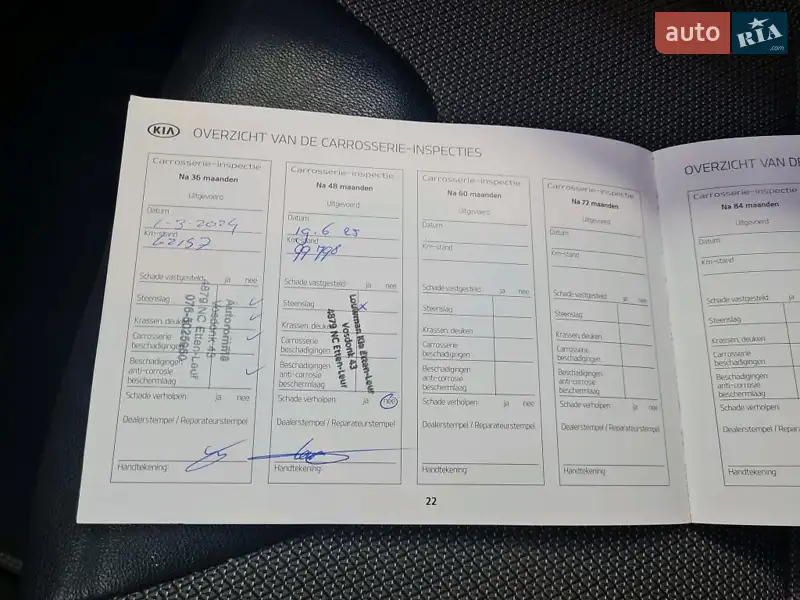 auto RIA .com
KIA OVERZICHT VAN DE CARROSSERIE-INSPECTIES
Carrosserie-inspectie
Na 36 maanden
Uitgevoerd
Datum
1-3-2024
Km-stand
62157
Schade vastgesteld: ja nee
Steenslag
Krassen, deuken
Carrosserie
beschadigingen
Beschadigingen
anti-corrosie
beschermlaag
Schade verholpen: ja nee
Dealerstempel / Reparateurstempel
Handtekening:
Vosdonk 43
4879 NC Etten-Leur
Carrosserie-inspectie
Na 48 maanden
Uitgevoerd
Datum
19.6 25
Km-stand
99798
Schade vastgesteld: ja nee
Steenslag x
Krassen, deuken
Carrosserie
beschadigingen
Beschadigingen
anti-corrosie
beschermlaag
Schade verholpen: ja nee
Dealerstempel / Reparateurstempel
Handtekening:
Louwman Kia Etten-Leur
Vosdonk 43
4879 NC Etten-Leur
Carrosserie-inspectie
Na 60 maanden
Uitgevoerd
Datum
Km-stand
Schade vastgesteld: ja nee
Steenslag
Krassen, deuken
Carrosserie
beschadigingen
Beschadigingen
anti-corrosie
beschermlaag
Schade verholpen: ja nee
Dealerstempel / Reparateurstempel
Handtekening:
Carrosserie-inspectie
Na 72 maanden
Uitgevoerd
Datum
Km-stand
Schade vastgesteld: ja nee
Steenslag
Krassen, deuken
Carrosserie
beschadigingen
Beschadigingen
anti-corrosie
beschermlaag
Schade verholpen: ja nee
Dealerstempel / Reparateurstempel
Handtekening:
22
OVERZICHT VAN
Carrosserie-inspectie
Na 84 maanden
Uitgevoerd
Datum
Km-stand
Schade vastgesteld: ja
Steenslag
Krassen, deuken
Carrosserie
beschadigingen
Beschadigingen
anti-corrosie
beschermlaag
Schade verholpen: ja
Dealerstempel / Reparateurstempel
Handtekening: